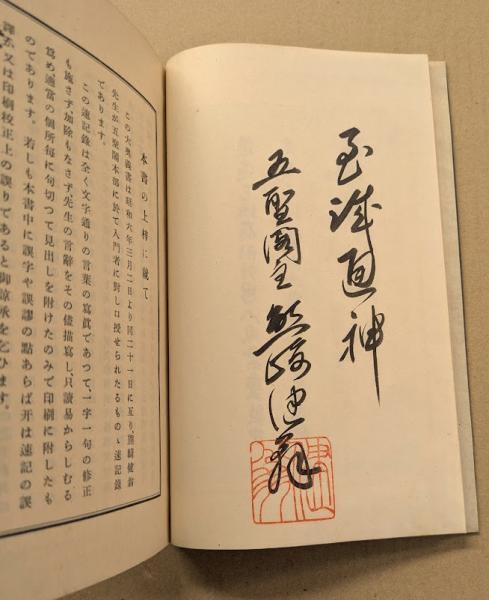 至誠通神
五聖閣主 熊﨑健翁
本書の上梓に就て
この大奥義書は昭和六年三月二日より同二十一日に亙り、熊﨑健翁
先生が五聖閣本部に於て入門者に對し口授せられたるものゝ速記錄
であります。
この速記錄は全く文字通りの言葉の寫眞であつて、一字一句の修正
も施さず、加除もなさず、先生の言辭をその儘描寫し、只讀易からしむる
爲め適當の個所每に句切つて見出しを附けたのみで印刷に附したも
のであります。若しも本書中に誤字や誤謬の點あらば开は速記の誤
譯か又は印刷校正上の誤りであると御諒承を乞ひます。